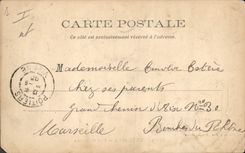 CARTE POSTALE
Ce côté est exclusivement réservé à l'adresse.
Mademoiselle
POITIERS
chez ses parents
Grand Chemin d'Aix N° 30
Marseille Bouches du Rhône